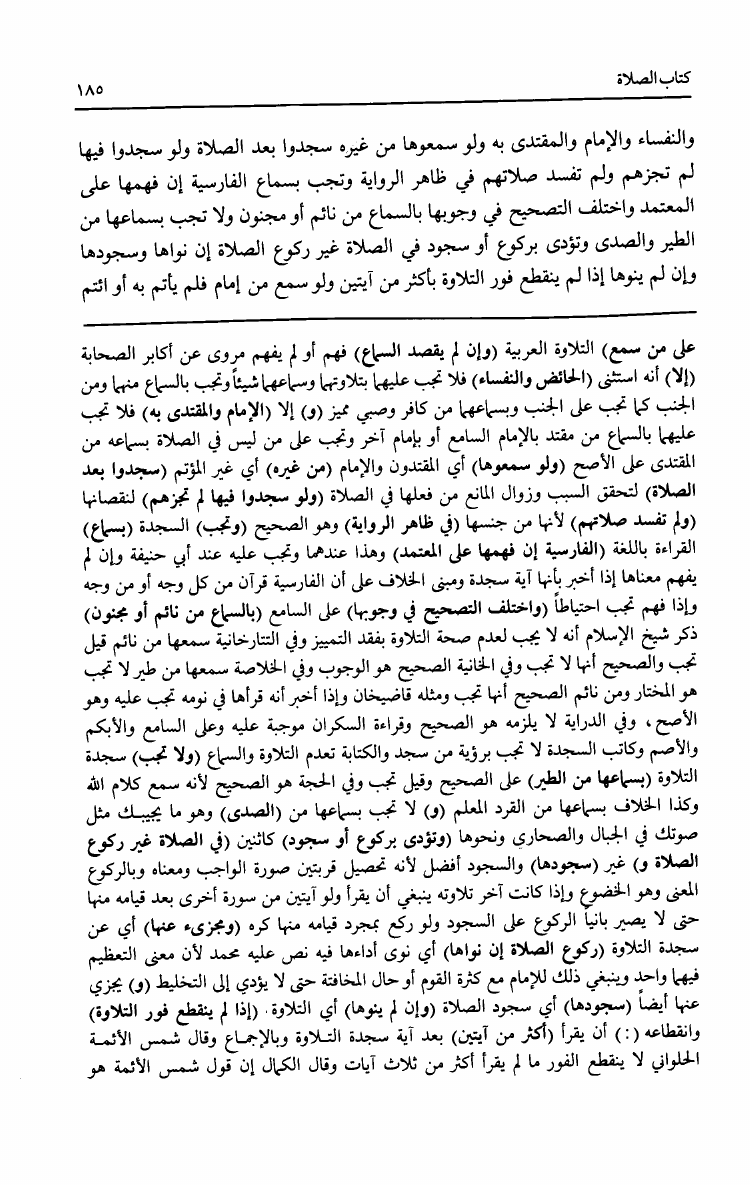 كتاب الصلاة
١٨٥
والنفساء والإمام والمقتدى به ولو سمعوها من غيره سجدوا بعد الصلاة ولو سجدوا فيها
لم تجزهم ولم تفسد صلاتهم في ظاهر الرواية وتجب بسماع الفارسية إن فهمها على
المعتمد واختلف التصحيح في وجوبها بالسماع من نائم أو مجنون ولا تجب بسماعها من
الطير والصدى وتؤدى بركوع أو سجود في الصلاة غير ركوع الصلاة إن نواها وسجودها
وإن لم ينوها إذا لم ينقطع فور التلاوة بأكثر من آيتين ولو سمع من إمام فلم يأتم به أو ائتم
على من سمع) التلاوة العربية (وإن لم يقصد السماع) فهم أو لم يفهم مروى عن أكابر الصحابة
(إلا) أنه استثنى (الحائض والنفساء) فلا تجب عليهما بتلاوتهما وسماعهما شيئاً وتجب بالسماع منهما ومن
الجنب كما تجب على الجنب وبسماعها من كافر وصبي مميز (و) إلا (الإمام والمقتدى به) فلا تجب
عليهما بالسماع من مقتد بالإمام السامع أو بإمام آخر وتجب على من ليس في الصلاة بسماعه من
المقتدى على الأصح (ولو سمعوها) أي المقتدون والإمام (من غيره) أي غير المؤتم (سجدوا بعد
الصلاة) لتحقق السبب وزوال المانع من فعلها في الصلاة (ولو سجدوا فيها لم تجزهم) لنقصانها
(ولم تفسد صلاتهم) لأنها من جنسها (في ظاهر الرواية) وهو الصحيح (وتجب) السجدة (بسماع)
القراءة باللغة (الفارسية إن فهمها على المعتمد) وهذا عندهما وتجب عليه عند أبي حنيفة وإن لم
يفهم معناها إذا أخبر بأنها آية سجدة ومبنى الخلاف على أن الفارسية قرآن من كل وجه أو من وجه
وإذا فهم تجب احتياطاً (واختلف التصحيح في وجوبها) على السامع (بالسماع من نائم أو مجنون)
ذكر شيخ الإسلام أنه لا يجب لعدم صحة التلاوة بفقد التمييز وفي التتارخانية سمعها من نائم قيل
تجب والصحيح أنها لا تجب وفي الخانية الصحيح هو الوجوب وفي الخلاصة سمعها من طير لا تجب
هو المختار ومن نائم الصحيح أنها تجب ومثله قاضيخان وإذا أخبر أنه قرأها في نومه تجب عليه وهو
الأصح، وفي الدراية لا يلزمه هو الصحيح وقراءة السكران موجبة عليه وعلى السامع والأبكم
والأصم وكاتب السجدة لا تجب برؤية من سجد والكتابة تعدم التلاوة والسماع (ولا تجب) سجدة
التلاوة (بسماعها من الطير) على الصحيح وقيل تجب وفي الحجة هو الصحيح لأنه سمع كلام الله
وكذا الخلاف بسماعها من القرد المعلم (و) لا تجب بسماعها من (الصدى) وهو ما يجيبك مثل
صوتك في الجبال والصحاري ونحوها (وتؤدى بركوع أو سجود) كائنين (في الصلاة غير ركوع
الصلاة و) غير (سجودها) والسجود أفضل لأنه تحصيل قربتين صورة الواجب ومعناه وبالركوع
المعنى وهو الخضوع وإذا كانت آخر تلاوته ينبغي أن يقرأ ولو آيتين من سورة أخرى بعد قيامه منها
حتى لا يصير بانياً الركوع على السجود ولو ركع بمجرد قيامه منها كره (ومجزىء عنها) أي عن
سجدة التلاوة (ركوع الصلاة إن نواها) أي نوى أداءها فيه نص عليه محمد لأن معنى التعظيم
فيهما واحد وينبغي ذلك للإمام مع كثرة القوم أو حال المخافتة حتى لا يؤدي إلى التخليط (و) يجزي
عنها أيضاً (سجودها) أي سجود الصلاة (وإن لم ينوها) أي التلاوة. (إذا لم ينقطع فور التلاوة)
وانقطاعه (:) أن يقرأ (أكثر من آيتين) بعد آية سجدة التلاوة وبالإجماع وقال شمس الأئمة
الحلواني لا ينقطع الفور ما لم يقرأ أكثر من ثلاث آيات وقال الكمال إن قول شمس الأئمة هو